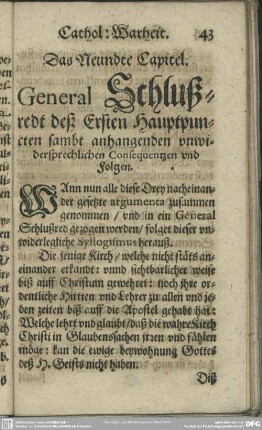 Cathol: Warheit. 43
Das Neundte Capitel.
General Schluß-
redt deß Ersten Hauptpun-
cten sambt anhangenden vnwi-
dersprechlichen Consequentzen vnd
Folgen.
WAnn nun alle diese Drey nacheinan-
der gesetzte argumenta zusammen
genommen / vnd in ein General
Schlußred gezogen werden / folget dieser vn-
widerlegliche Syllogismus herauß.
Die jenige Kirch / welche nicht stäts an-
einander erkandt: vnnd sichtbarlicher weise
biß auff Christum gewehret: noch ihre or-
dentliche Hirtten vnd Lehrer zu allen vnd je-
den zeiten biß auff die Apostel gehabt hat:
Welche lehrt vnd glaubt / daß die wahre Kirch
Christi in Glaubenssachen irren vnd fählen
möge: kan die ewige beywohnung Gottes
deß H. Geists nicht haben.
Diß